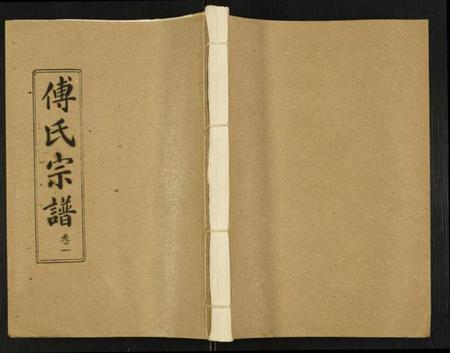 傅氏宗譜
卷一